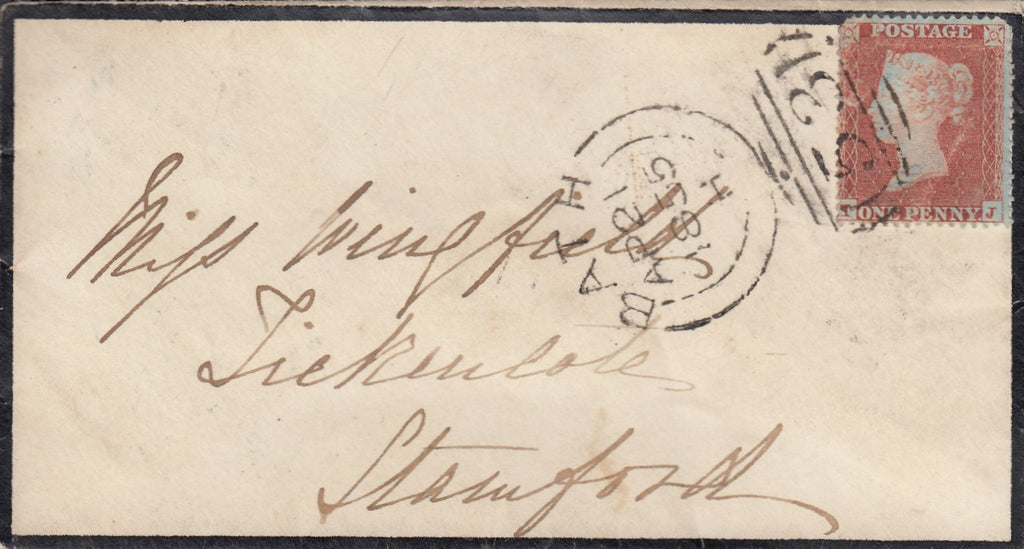 POSTAGE
ONE PENNY
J
BATH
AP 21
1855
Miss Wingfield
Tickencote
Stamford